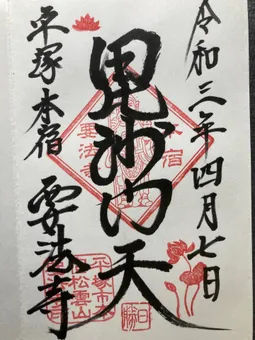 令和三年四月七日
毘沙門天
平塚本宿
要法寺
本宿
要法寺
平塚市
松雲山
要法寺